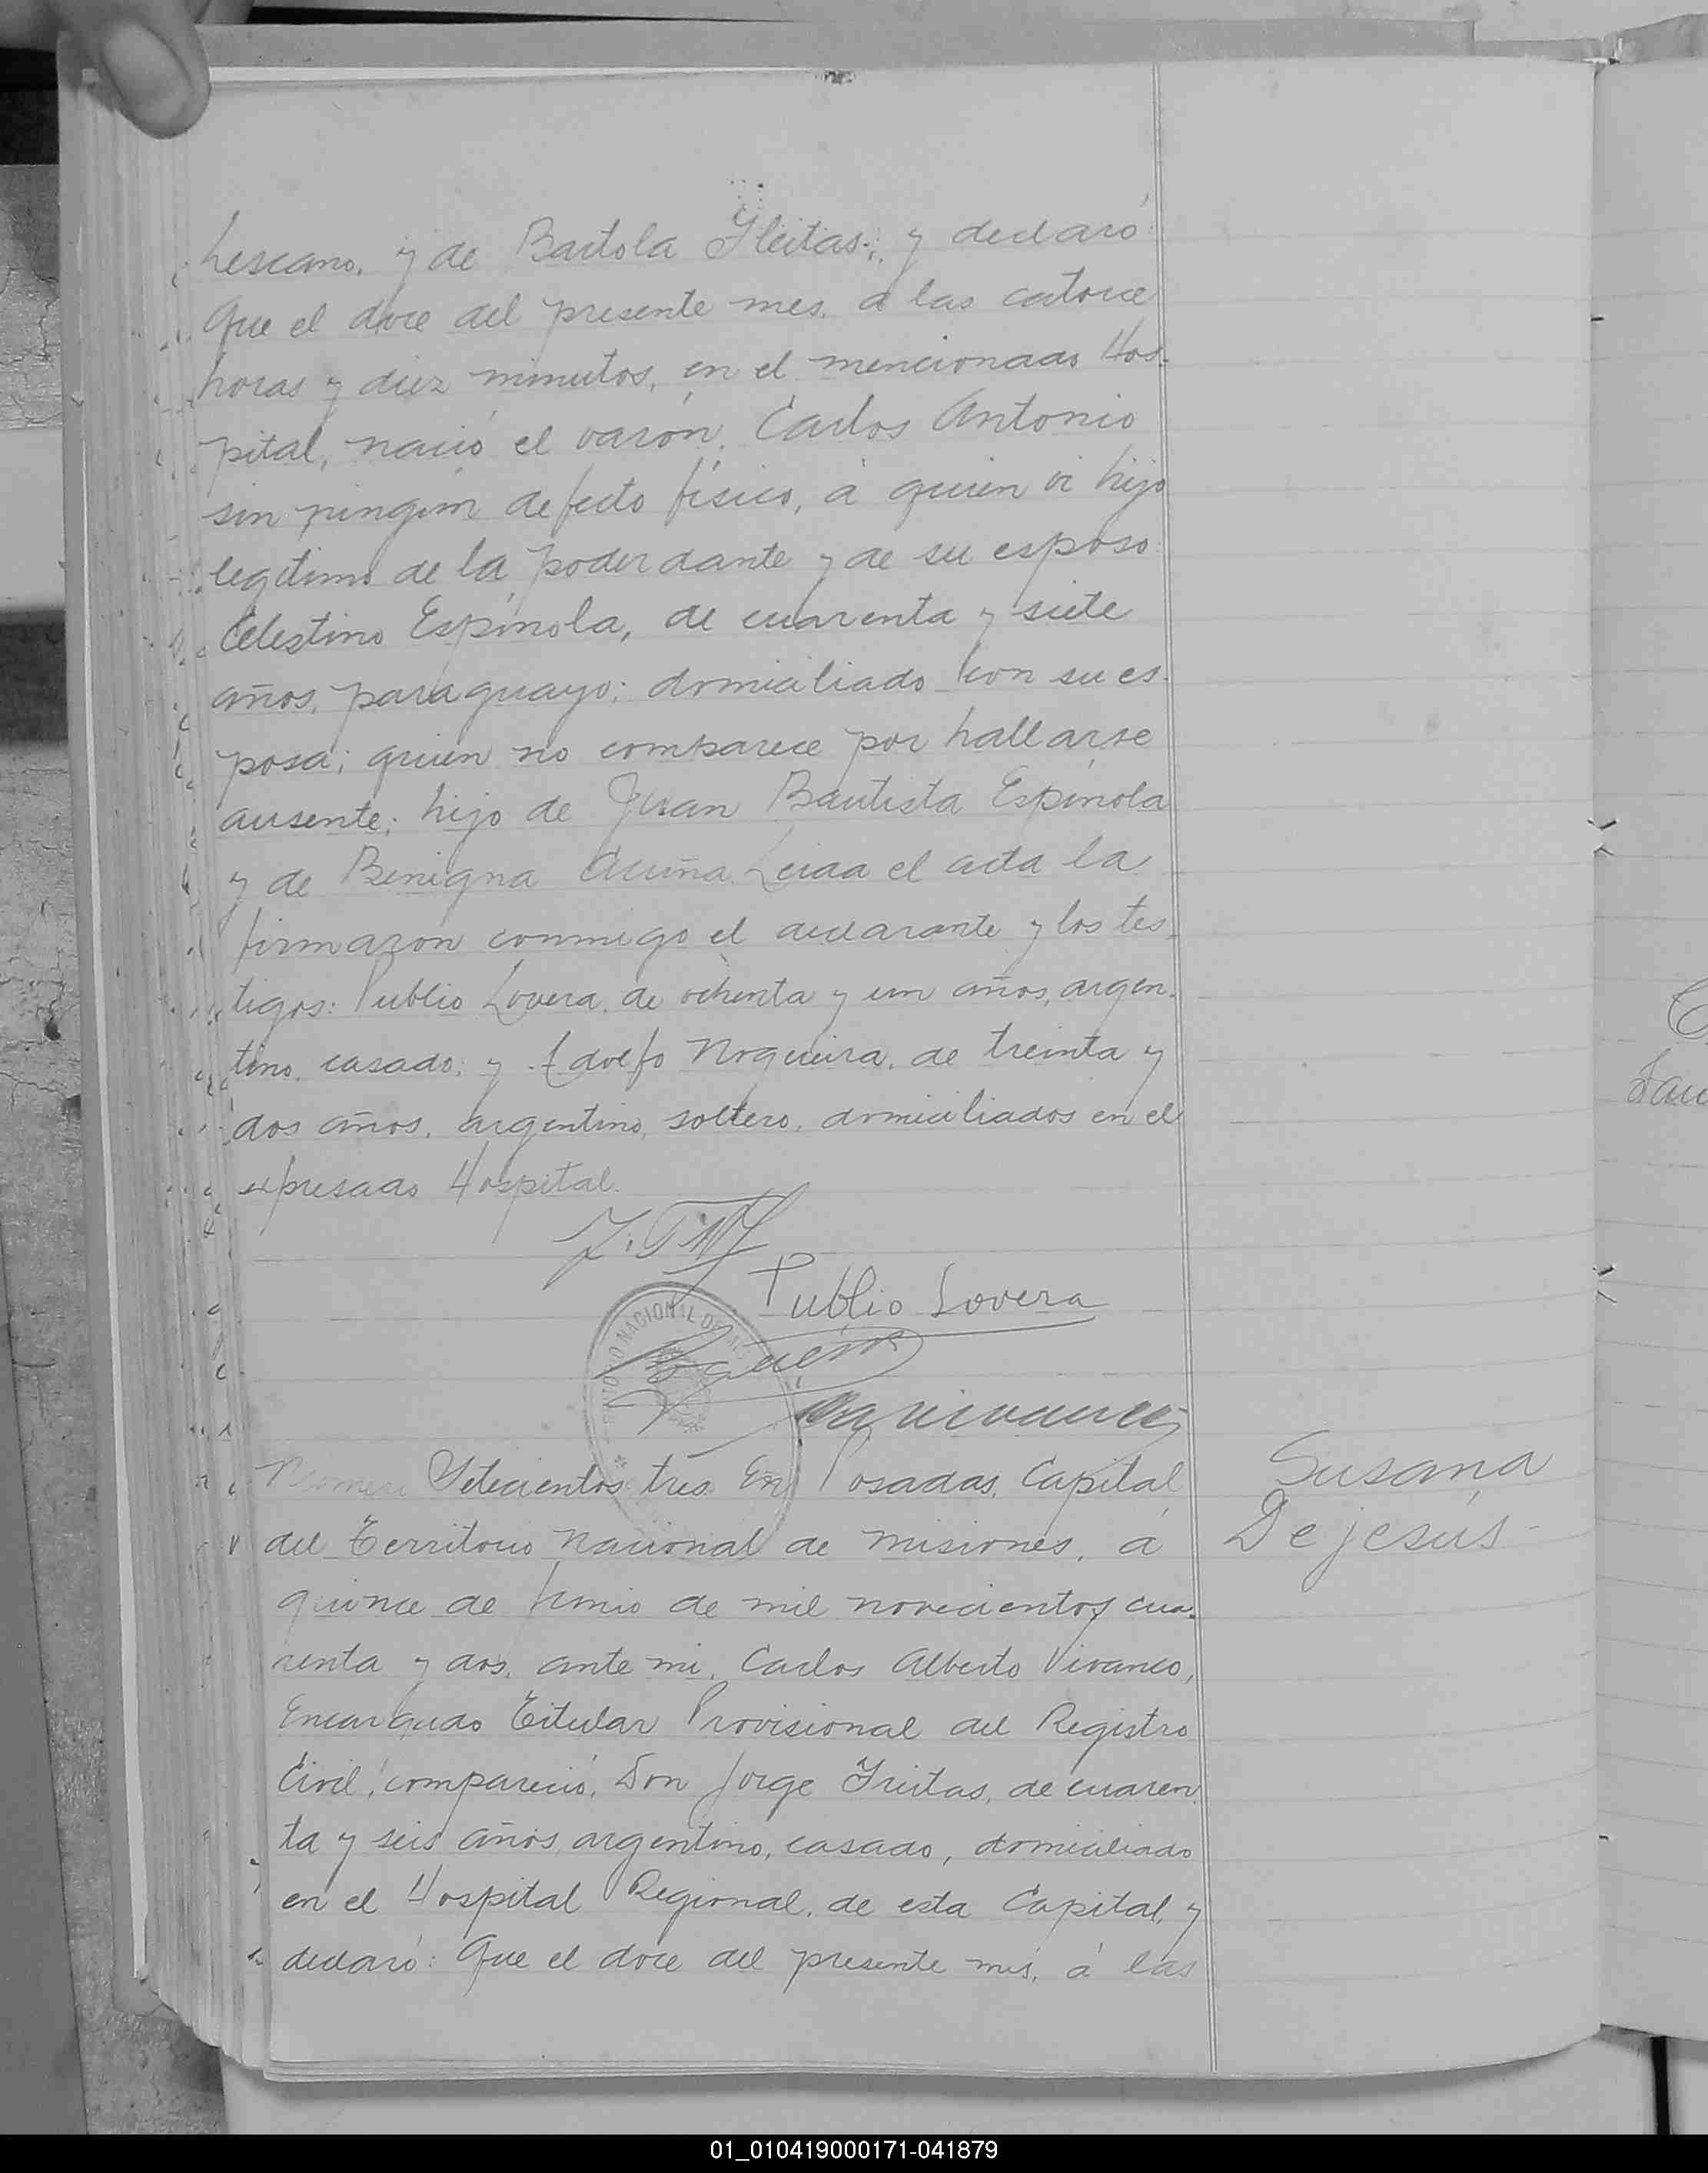 Lescano, y de Bartola Fleitas; y declaró:
Que el doce del presente mes, a las catorce
horas y diez minutos, en el mencionado Hos-
pital, nació el varón, Carlos Antonio
sin ningún defecto físico, á quien vi hijo
legitimo de la poderdante y de su esposo:
Celestino Espínola, de cuarenta y siete
años, paraguayo; domiciliado con su es-
posa; quien no comparece por hallarse
ausente; hijo de Juan Bautista Espínola
y de Benigna Acuña. Leida el acta la
firmaron conmigo el declarante y los tes-
tigos: Publio Lovera, de ochenta y un años, argen-
tino, casado; y Adolfo Nogueira, de treinta y
dos años, argentino, soltero, domiciliados en el
expresado Hospital.
Publio Lovera
NACIONAL DE
Numero Setecientos tres. En Posadas, Capital
del Territorio Nacional de Misiones, á
quince de Junio de mil novecientos cua-
renta y dos, ante mi, Carlos Alberto Vivanco,
Encargado Titular Provisional del Registro
Civil, compareció, Don Jorge Freitas, de cuaren-
ta y seis años, argentino, casado, domiciliado
en el Hospital Regional, de esta Capital, y
declaró: Que el doce del presente mes, á las
Susana
De jesús
01_010419000171-041879